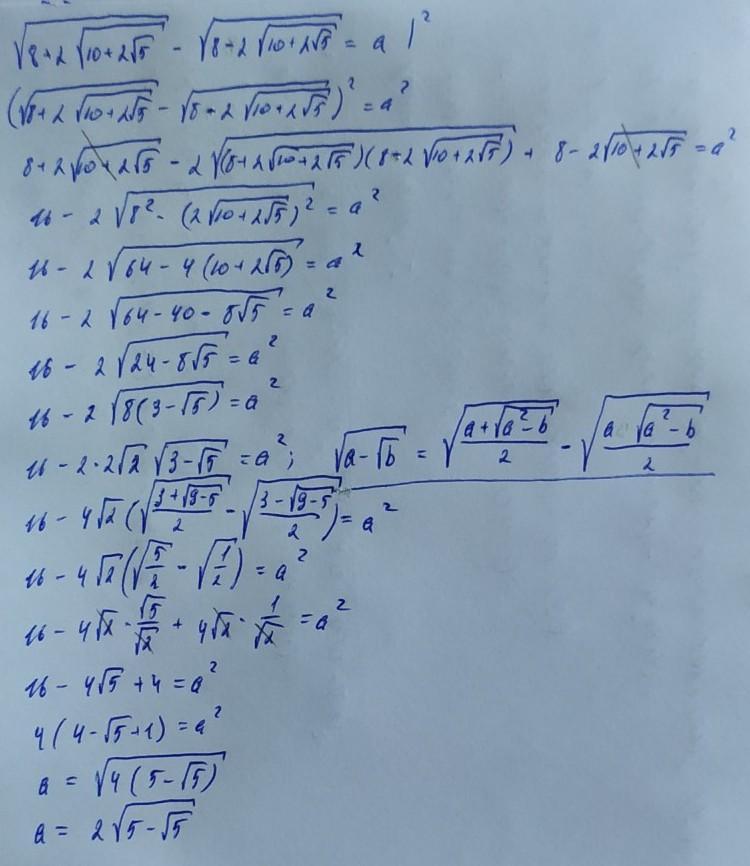 √(8+2√(10+2√5)) - √(8-2√(10+2√5)) = a |²
(√(8+2√(10+2√5)) - √(8-2√(10+2√5)))² = a²
8+2√(10+2√5) - 2√((8+2√(10+2√5))(8-2√(10+2√5))) + 8-2√(10+2√5) = a²
16 - 2√(8² - (2√(10+2√5))²) = a²
16 - 2√(64-4(10+2√5)) = a²
16 - 2√(64-40-8√5) = a²
16 - 2√(24-8√5) = a²
16 - 2√(8(3-√5)) = a²
16 - 2·2√2 √(3-√5) = a²; √(a-√b) = √((a+√(a²-b))/2) - √((a √(a²-b))/2)
16 - 4√2 (√((3+√(9-5))/2) - √((3-√(9-5))/2)) = a²
16 - 4√2 (√(5/2) - √(1/2)) = a²
16 - 4√2 · √5/√2 + 4√2 · 1/√2 = a²
16 - 4√5 + 4 = a²
4(4-√5+1) = a²
a = √(4(5-√5))
a = 2√(5-√5)